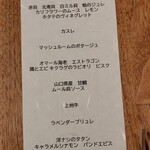 赤貝 北寄貝 白ミル貝 鮑のジュレ
カリフラワーのムース レモン
ホタテのヴィネグレット
カスレ
マッシュルームのポタージュ
オマール海老 エストラゴン
鶏とエビ キクラゲのラビオリ ビスク
山口県産 甘鯛
ムール貝ソース
上州牛
ラベンダーブリュレ
洋ナシのタタン
キャラメルシナモン パンドエピス